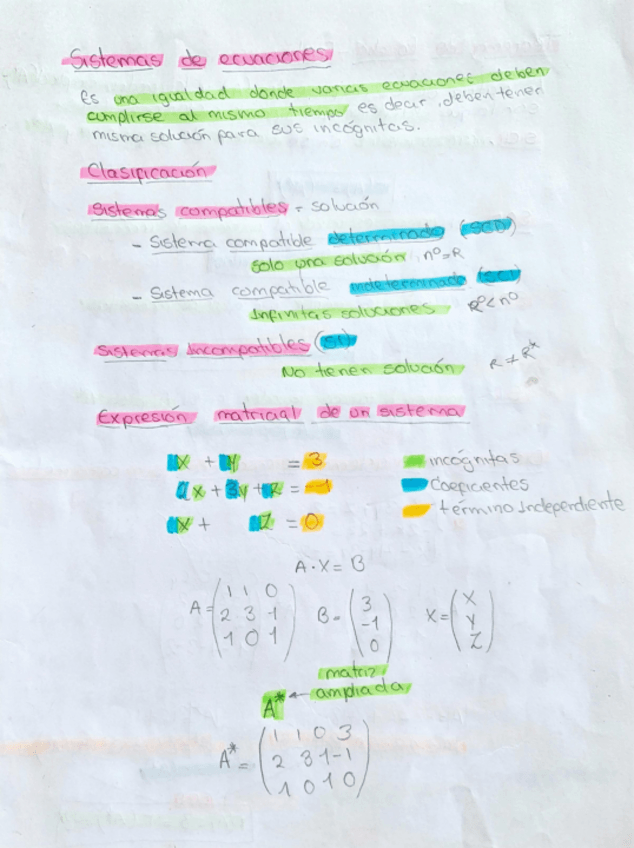 Sistemas de ecuaciones
es una igualdad donde varias ecuaciones deben
cumplirse al mismo tiempo es decir, deben tener
misma solución para sus incógnitas.
Clasificación
Sistemas compatibles = solución
- Sistema compatible determinado (SCD)
Solo una solución nº=R
- Sistema compatible indeterminado (SCI)
Infinitas soluciones Rº<nº
Sistemas Incompatibles (SI)
No tienen solución R≠R*
Expresión matricial de un sistema
x + y = 3
2x + 3y + z = -1
x + z = 0
incógnitas
Coeficientes
término Independiente
A·X = B
A = (1 1 0
2 3 1
1 0 1)
B = (3
-1
0)
X = (X
Y
Z)
matriz
A* ← ampliada
A* = (1 1 0 3
2 3 1 -1
1 0 1 0)